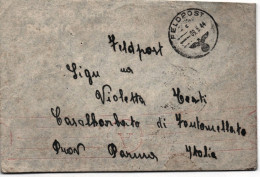 FELDPOST
Feldpost
Sign na
Violetta Conti
Casalbarbato di Fontanellato
Prov Parma Italia